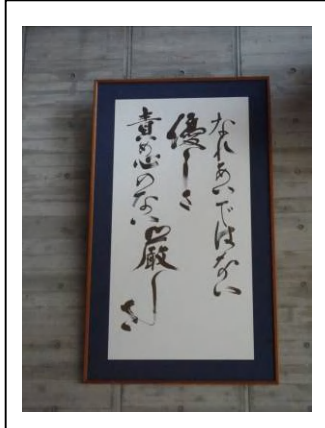 なれあいではない
優しさ
責め心のない厳しさ